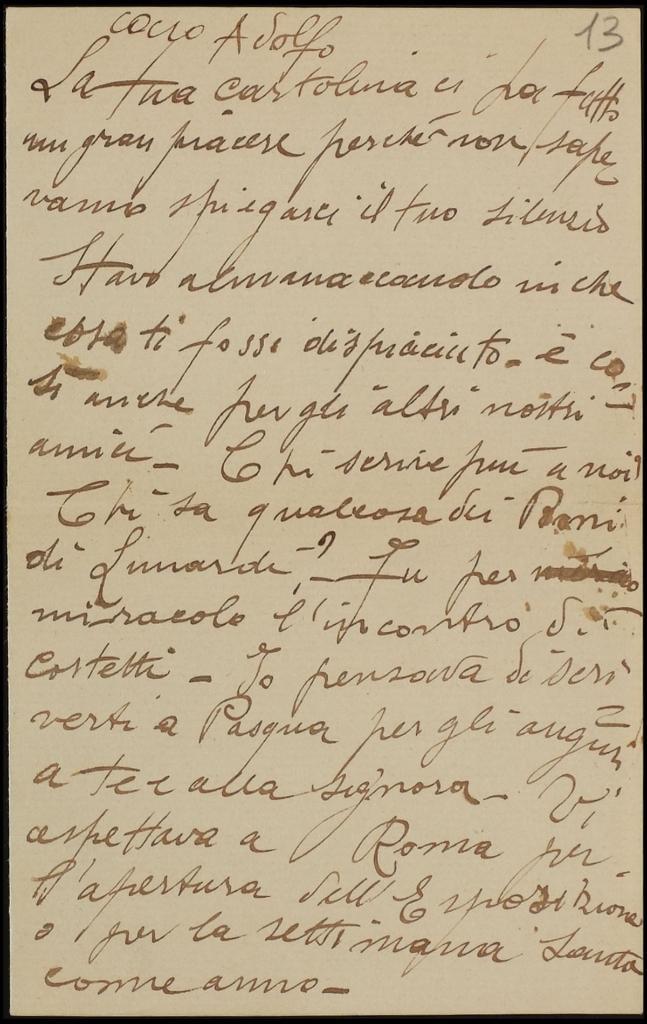 13
caro Adolfo
La tua cartolina ci ha fatto
un gran piacere perché non sape
vamo spiegarci il tuo silenzio
Stavo almanaccando in che
cosa ti fossi dispiaciuto - è co
sì anche per gli altri nostri
amici - Chi scrive più a noi?
Chi sa qualcosa dei
di Lunardi? - Fu per
miracolo l'incontro di
Costetti - Io pensava di scri
verti a Pasqua per gli auguri
a te e alla signora - Vi
aspettava a Roma per
l'apertura dell'Esposizione
o per la settimana Santa
come anno -